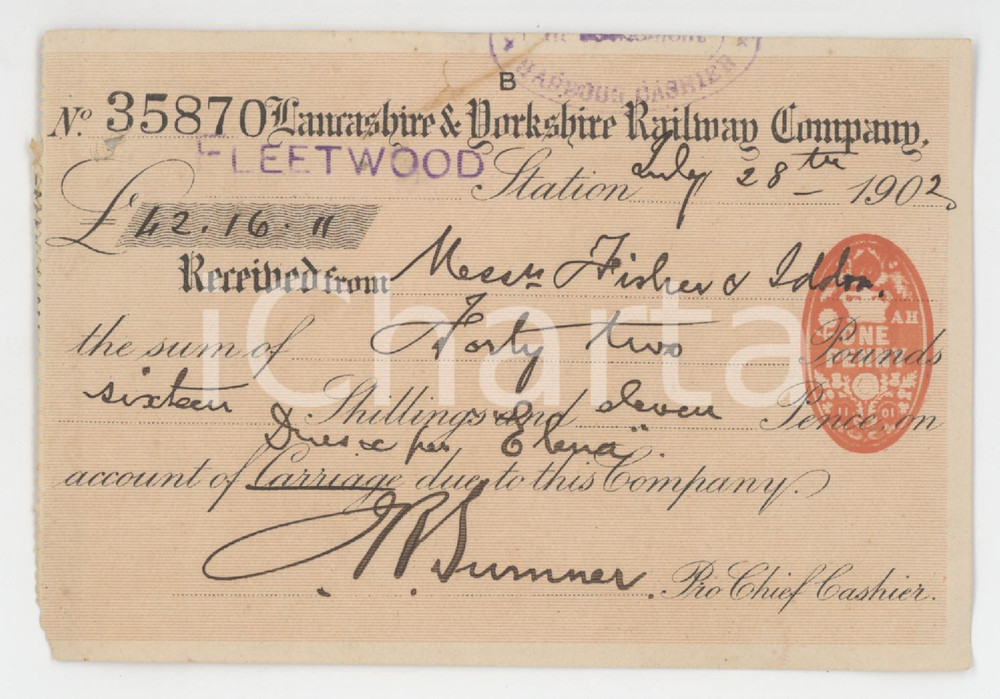 HARBOUR CASHIER
B
No. 35870 Lancashire & Yorkshire Railway Company.
FLEETWOOD
Station July 28th – 1902
£ 42.16.11
Received from Messrs Fisher & Iddon.
the sum of Forty two Pounds
sixteen Shillings and eleven Pence, on
Dues &c per "Elena"
account of Carriage due to this Company.
J R Sumner. Pro Chief Cashier.
AH
ONE
PENNY
11 01
iCharta